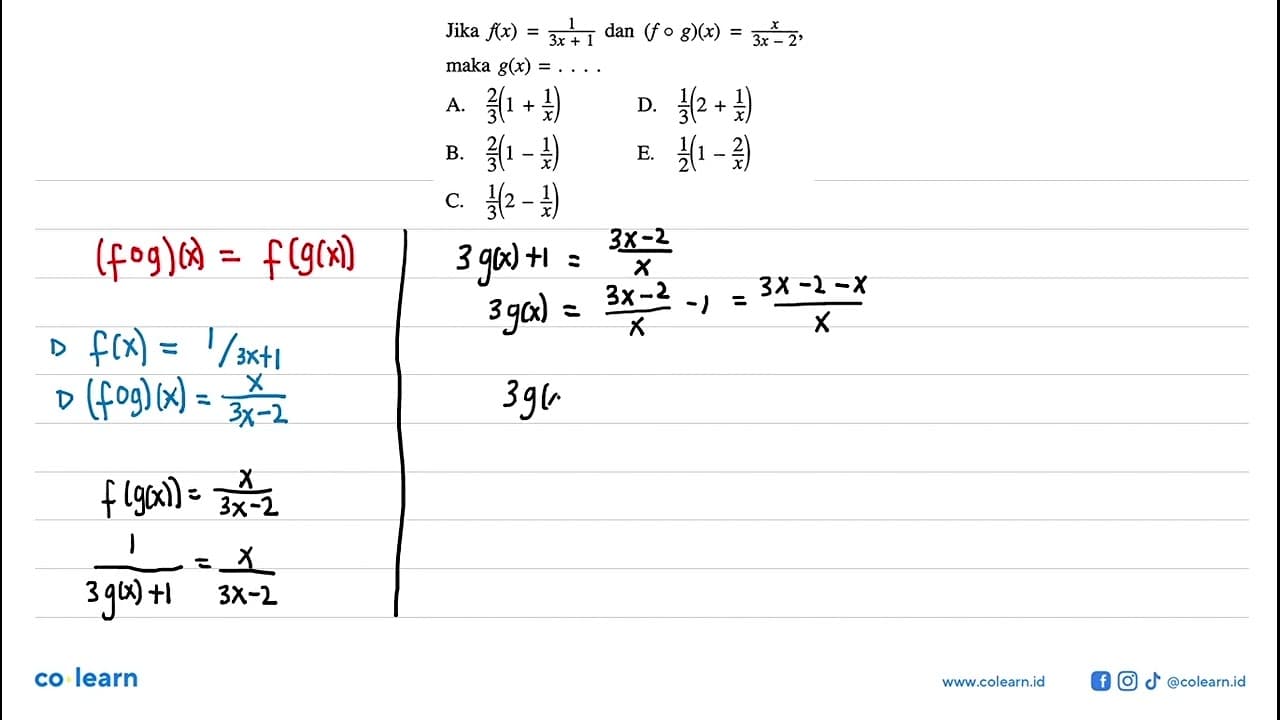 Jika f(x) = 1/(3x + 1) dan (f ∘ g)(x) = x/(3x − 2),
maka g(x) = . . . .
A. 2/3(1 + 1/x)
B. 2/3(1 − 1/x)
C. 1/3(2 − 1/x)
D. 1/3(2 + 1/x)
E. 1/2(1 − 2/x)
(fog)(x) = f(g(x))
D f(x) = 1/3x+1
D (fog)(x) = x/(3x-2)
f(g(x)) = x/(3x-2)
1/(3g(x)+1) = x/(3x-2)
3g(x)+1 = (3x-2)/x
3g(x) = (3x-2)/x -1 = (3x-2-x)/x
3g(
co learn
www.colearn.id
@colearn.id